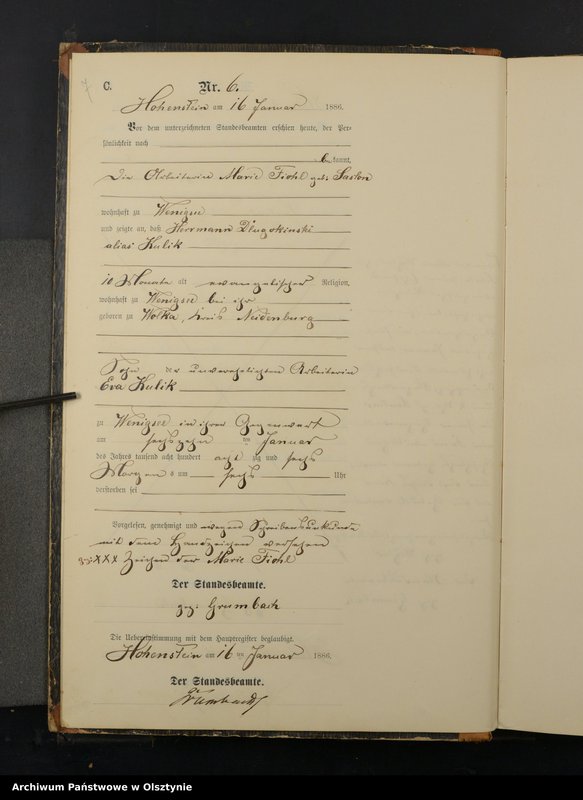 C. Nr. 6.
Hohenstein am 16 Januar 1886.
Vor dem unterzeichneten Standesbeamten erschien heute, der Per-
sönlichkeit nach
be kannt,
die Arbeiterin Marie Fiohl geb.
wohnhaft zu Wenigsee
und zeigte an, daß Herrmann Dlugokinski
alias Kulik
10 Monate alt evangelischer Religion,
wohnhaft zu Wenigsee bei ihr
geboren zu Wolka, Kreis Neidenburg
Sohn der unverehelichten Arbeiterin
Eva Kulik
zu Wenigsee in ihrer Gegenwart
am sechszehn ten Januar
des Jahres tausend acht hundert acht zig und sechs
Morgen s um sechs Uhr
verstorben sei
Vorgelesen, genehmigt und wegen Schreibensunkunde
mit dem Handzeichen versehen
gez: XXX Zeichen der Marie Fiohl
Der Standesbeamte.
gez: Grumbach
Die Uebereinstimmung mit dem Hauptregister beglaubigt.
Hohenstein am 16 ten Januar 1886.
Der Standesbeamte.
Grumbach
Archiwum Państwowe w Olsztynie